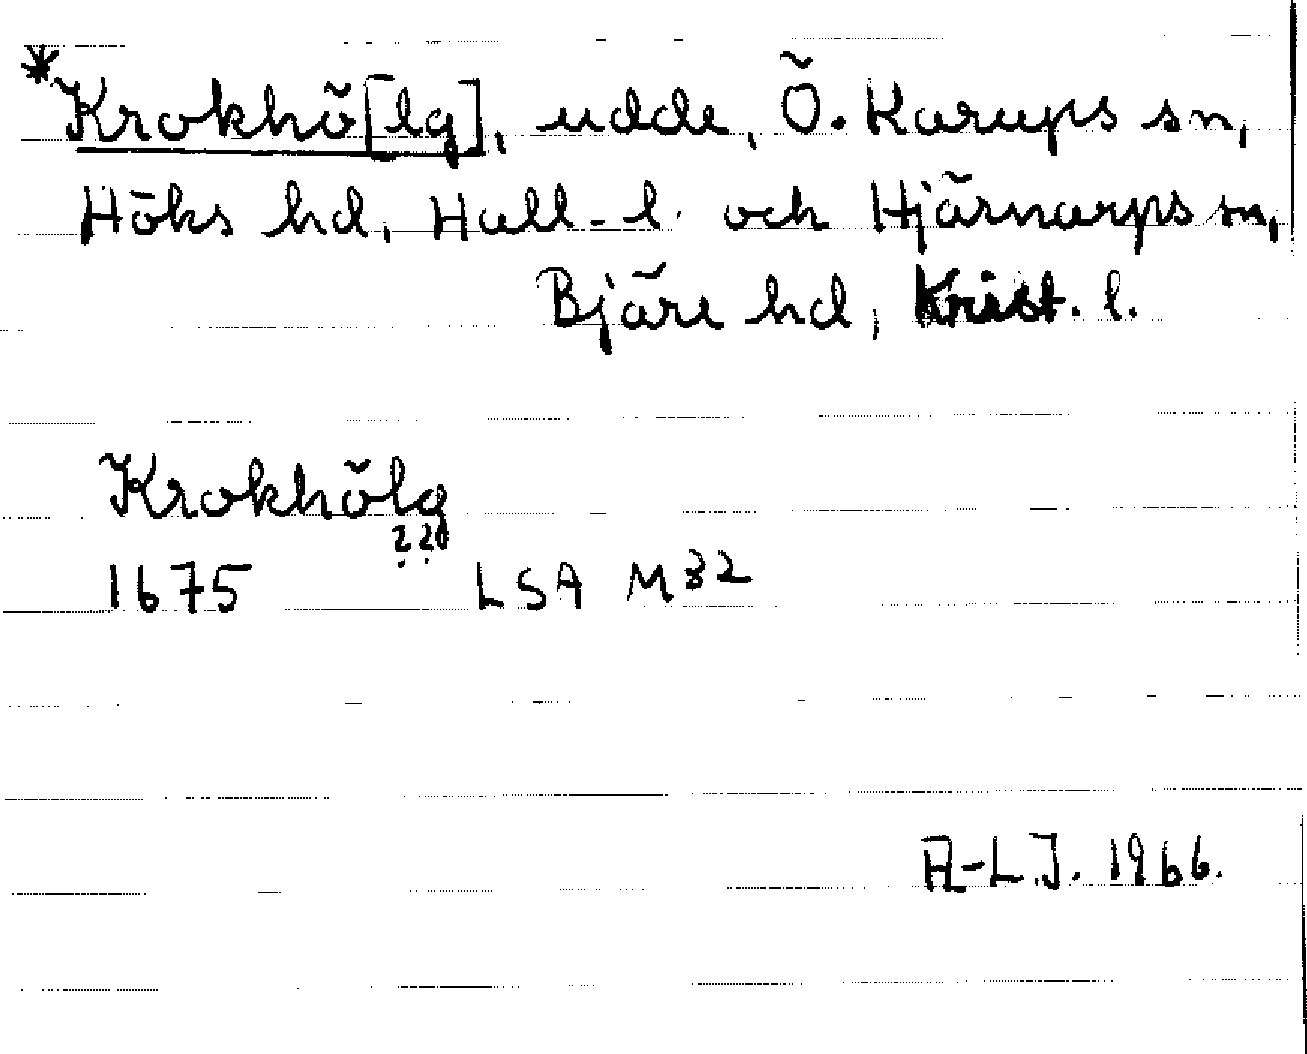 *Krokhö[lg], udde, Ö. Karups sn,
Höks hd, Hall-l. och Hjärnarps sn,
Bjäre hd, Krist. l.
Krokhölg
? ?
1675 LSA M32
A-L.J. 1966.